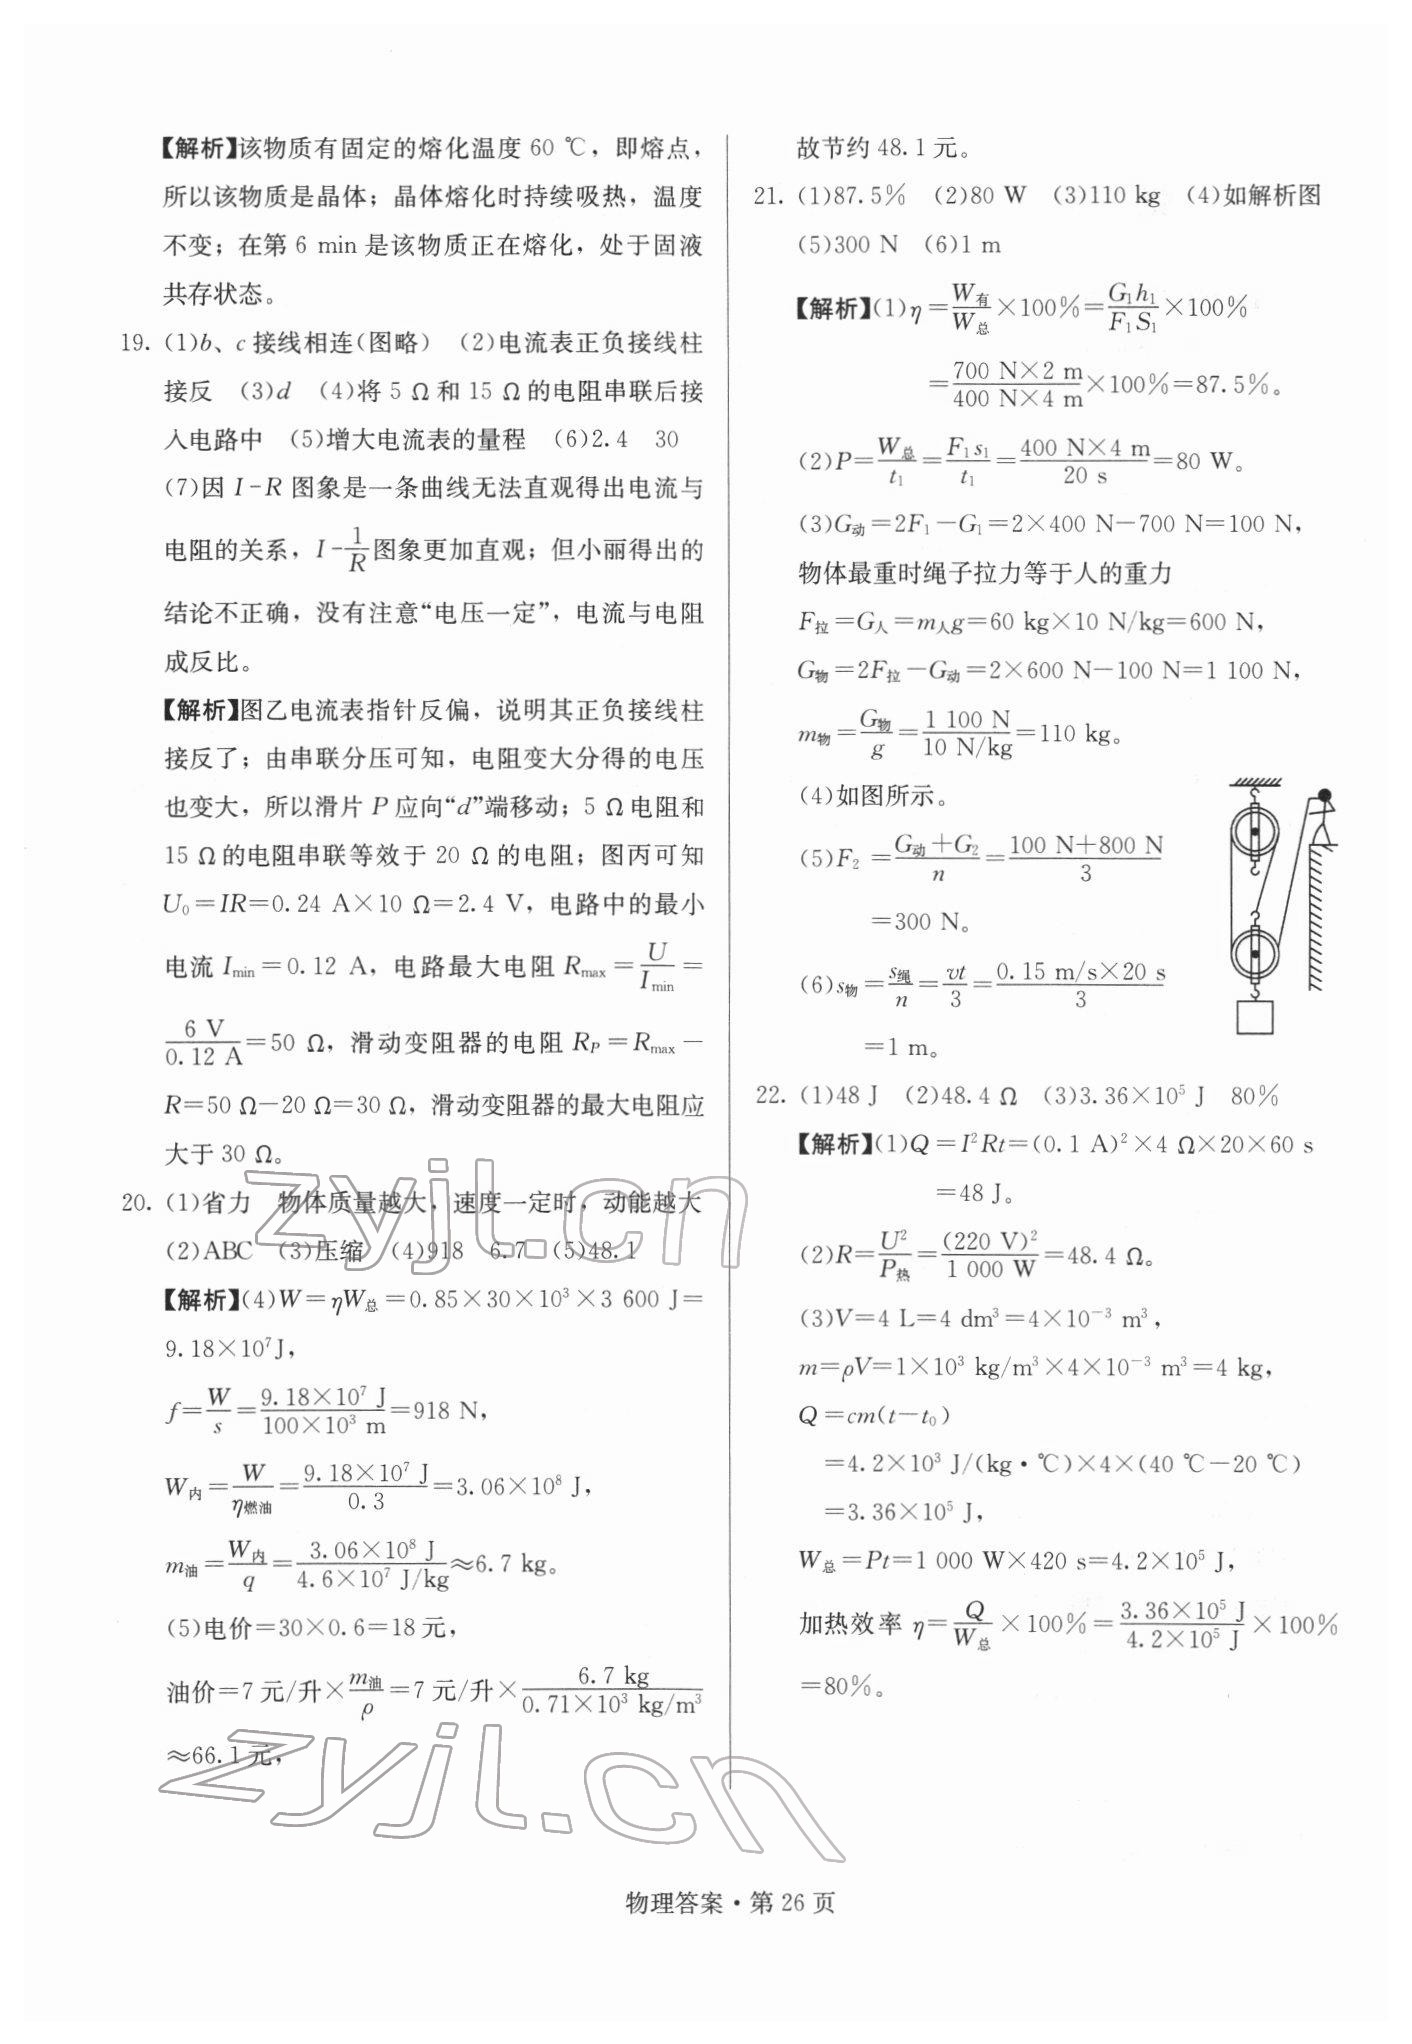 【解析】该物质有固定的熔化温度 60 ℃，即熔点，
所以该物质是晶体；晶体熔化时持续吸热，温度
不变；在第 6 min 是该物质正在熔化，处于固液
共存状态。
19. (1)b、c 接线相连(图略) (2)电流表正负接线柱
接反 (3)d (4)将 5 Ω 和 15 Ω 的电阻串联后接
入电路中 (5)增大电流表的量程 (6)2.4 30
(7)因 I-R 图象是一条曲线无法直观得出电流与
电阻的关系，I-1/R 图象更加直观；但小丽得出的
结论不正确，没有注意“电压一定”，电流与电阻
成反比。
【解析】图乙电流表指针反偏，说明其正负接线柱
接反了；由串联分压可知，电阻变大分得的电压
也变大，所以滑片 P 应向“d”端移动；5 Ω 电阻和
15 Ω 的电阻串联等效于 20 Ω 的电阻；图丙可知
U₀=IR=0.24 A×10 Ω=2.4 V，电路中的最小
电流 Imin=0.12 A，电路最大电阻 Rmax=U/Imin=
6 V/0.12 A=50 Ω，滑动变阻器的电阻 RP=Rmax-
R=50 Ω-20 Ω=30 Ω，滑动变阻器的最大电阻应
大于 30 Ω。
20. (1)省力 物体质量越大，速度一定时，动能越大
(2)ABC (3)压缩 (4)918 6.7 (5)48.1
【解析】(4)W=ηW总=0.85×30×10³×3 600 J=
9.18×10⁷J，
f=W/s=9.18×10⁷ J/100×10³ m=918 N，
W内=W/η燃油=9.18×10⁷ J/0.3=3.06×10⁸ J，
m油=W内/q=3.06×10⁸ J/4.6×10⁷ J/kg≈6.7 kg。
(5)电价=30×0.6=18 元，
油价=7 元/升×m油/ρ=7 元/升×6.7 kg/0.71×10³ kg/m³
≈66.1 元，
故节约 48.1 元。
21. (1)87.5% (2)80 W (3)110 kg (4)如解析图
(5)300 N (6)1 m
【解析】(1)η=W有/W总×100%=G₁h₁/F₁S₁×100%
=700 N×2 m/400 N×4 m×100%=87.5%。
(2)P=W总/t₁=F₁s₁/t₁=400 N×4 m/20 s=80 W。
(3)G动=2F₁-G₁=2×400 N-700 N=100 N，
物体最重时绳子拉力等于人的重力
F拉=G人=m人g=60 kg×10 N/kg=600 N，
G物=2F拉-G动=2×600 N-100 N=1 100 N，
m物=G物/g=1 100 N/10 N/kg=110 kg。
(4)如图所示。
(5)F₂=G动+G₂/n=100 N+800 N/3
=300 N。
(6)s物=s绳/n=vt/3=0.15 m/s×20 s/3
=1 m。
22. (1)48 J (2)48.4 Ω (3)3.36×10⁵ J 80%
【解析】(1)Q=I²Rt=(0.1 A)²×4 Ω×20×60 s
=48 J。
(2)R=U²/P热=(220 V)²/1 000 W=48.4 Ω。
(3)V=4 L=4 dm³=4×10⁻³ m³，
m=ρV=1×10³ kg/m³×4×10⁻³ m³=4 kg，
Q=cm(t-t₀)
=4.2×10³ J/(kg·℃)×4×(40 ℃-20 ℃)
=3.36×10⁵ J，
W总=Pt=1 000 W×420 s=4.2×10⁵ J，
加热效率 η=Q/W总×100%=3.36×10⁵ J/4.2×10⁵ J×100%
=80%。
zyjl.cn
zyjl.cn
物理答案·第 26 页